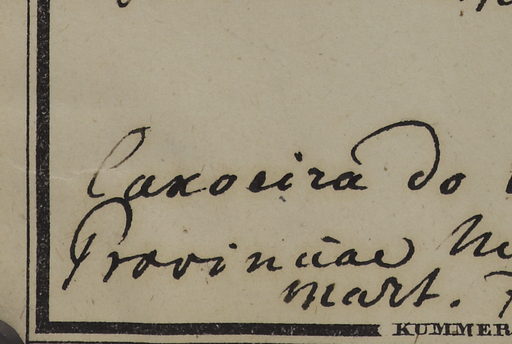 Caxoeira do
Provinciae
mart.
KUMMER